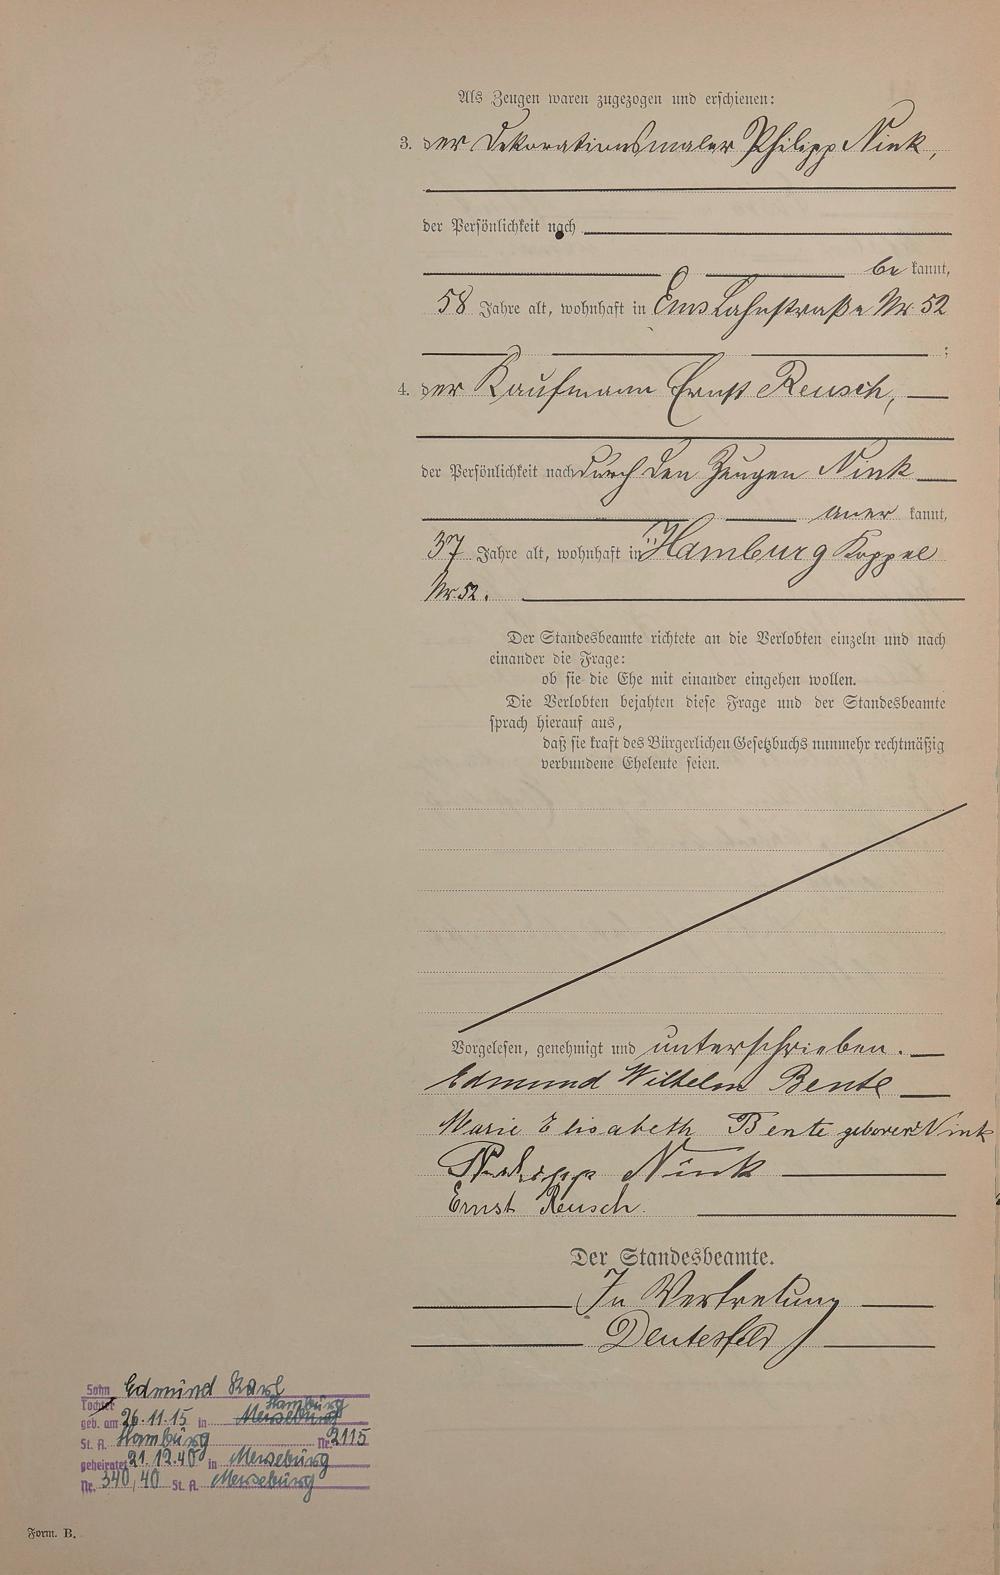 Als Zeugen waren zugezogen und erschienen:
3. der Dekorationsmaler Philipp Nink,
der Persönlichkeit nach
be kannt,
58 Jahre alt, wohnhaft in Ems Lahnstraße Nr. 52
;
4. der Kaufmann Ernst Reusch,
der Persönlichkeit nach durch den Zeugen Nink
aner kannt,
37 Jahre alt, wohnhaft in Hamburg Koppel
Nr. 52.
Der Standesbeamte richtete an die Verlobten einzeln und nach
einander die Frage:
ob sie die Ehe mit einander eingehen wollen.
Die Verlobten bejahten diese Frage und der Standesbeamte
sprach hierauf aus,
daß sie kraft des Bürgerlichen Gesetzbuchs nunmehr rechtmäßig
verbundene Eheleute seien.
Vorgelesen, genehmigt und unterschrieben.
Edmund Wilhelm Bente
Marie Elisabeth Bente geborene Nink
Philipp Nink
Ernst Reusch.
Der Standesbeamte.
In Vertretung
Deutesfeld
Sohn Edmund Karl
Tochter Hamburg
geb. am 26.11.15 in Merseburg
St. A. Hamburg Nr. 2115
geheiratet 21.12.40 in Merseburg
Nr. 340/40 St. A. Merseburg
Form. B.